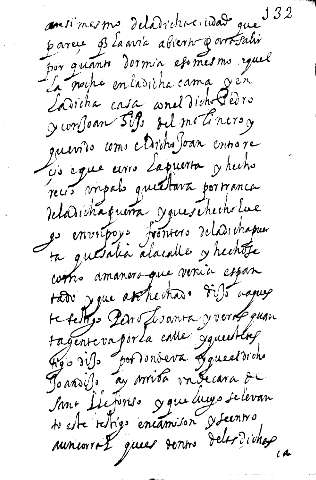 132
ansi mesmo de la dicha ciudad que
pareçe q la avia abierto por salir
por quanto dormia esomesmo aquel
la noche en la dicha cama y en
la dicha casa con el dicho Pedro
y con Joan hijo del molinero y
querido como el dicho Joan entro re
cio e que cerro la puerta y hecho
recio un palo que estava por tranca
de la dicha puerta y que se hecho lue
go en un poyo frontero de la dicha puer
ta que salia a la calle y hechose
como a manera que venia espan
tado y que a hechado dijo a aques
te testigo Pedro levanta y veras quan
ta gente va por la calle y que este tes
tigo dijo por donde va y que el dicho
Joan dijo ay arriba en de cara de
Sant Llefonso y que luego se levan
to este testigo en camison y se entro
a un corral que es dentro de las dichas